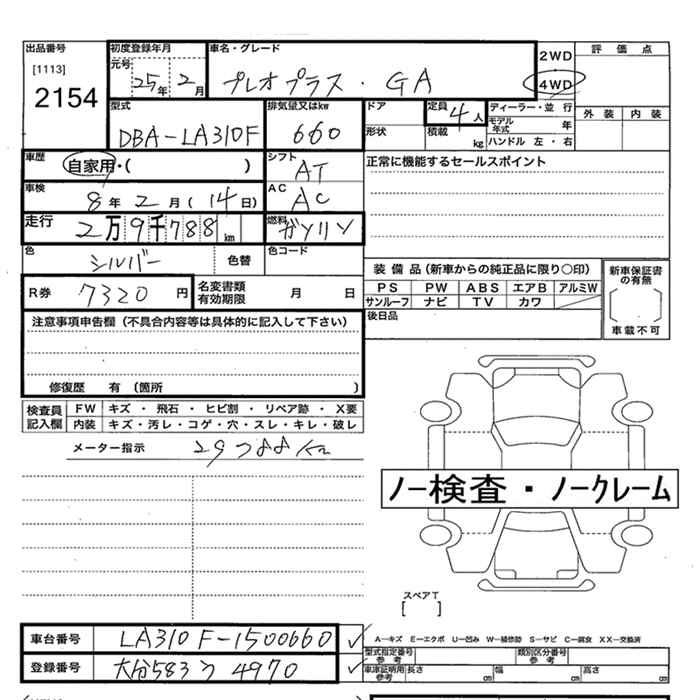 出品番号
[1113]
2154
初度登録年月
元号
25年 2月
車名・グレード
プレオプラス・GA
2WD
4WD
評価点
外装 内装
型式
DBA-LA310F
排気量又はkw
660
ドア
形状
定員
4人
積載 kg
ディーラー・並行
モデル年式 年
ハンドル 左・右
車歴
自家用・( )
シフト
AT
正常に機能するセールスポイント
車検
8年 2月 (14日)
AC
AC
走行
2万9千788km
燃料
ガソリン
色
シルバー
色替
色コード
R券
7320円
名変書類
有効期限
月 日
装備品(新車からの純正品に限り○印)
PS PW ABS エアB アルミW
サンルーフ ナビ TV カワ
後日品
新車保証書
の有無
車載不可
注意事項申告欄(不具合内容等は具体的に記入して下さい)
修復歴 有 (箇所 )
検査員
記入欄
FW キズ・飛石・ヒビ割・リペア跡・X要
内装 キズ・汚レ・コゲ・穴・スレ・キレ・破レ
メーター指示 29788Km
ノー検査・ノークレーム
スペアT
[ ]
車台番号 LA310F-1500660
登録番号
大分583 4970
A-キズ E-エクボ U-凹み W-補修跡 S-サビ C-腐食 XX-交換済
型式指定番号
参考
類別区分番号
参考
車庫証明用
参考
長さ cm 幅 cm 高さ cm